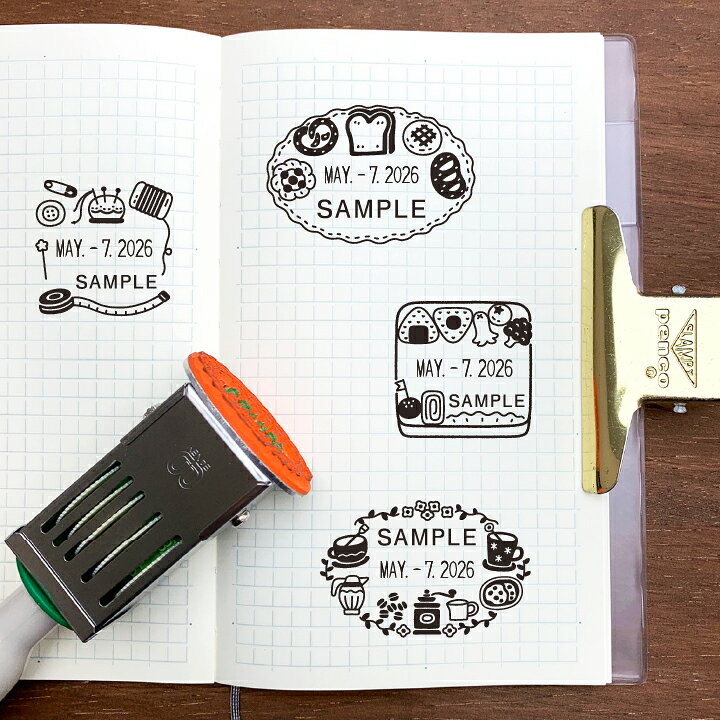 MAY. - 7. 2026
SAMPLE
MAY. - 7. 2026
SAMPLE
MAY. - 7. 2026
SAMPLE
SAMPLE
MAY. - 7. 2026
CLAMPY
penco
®